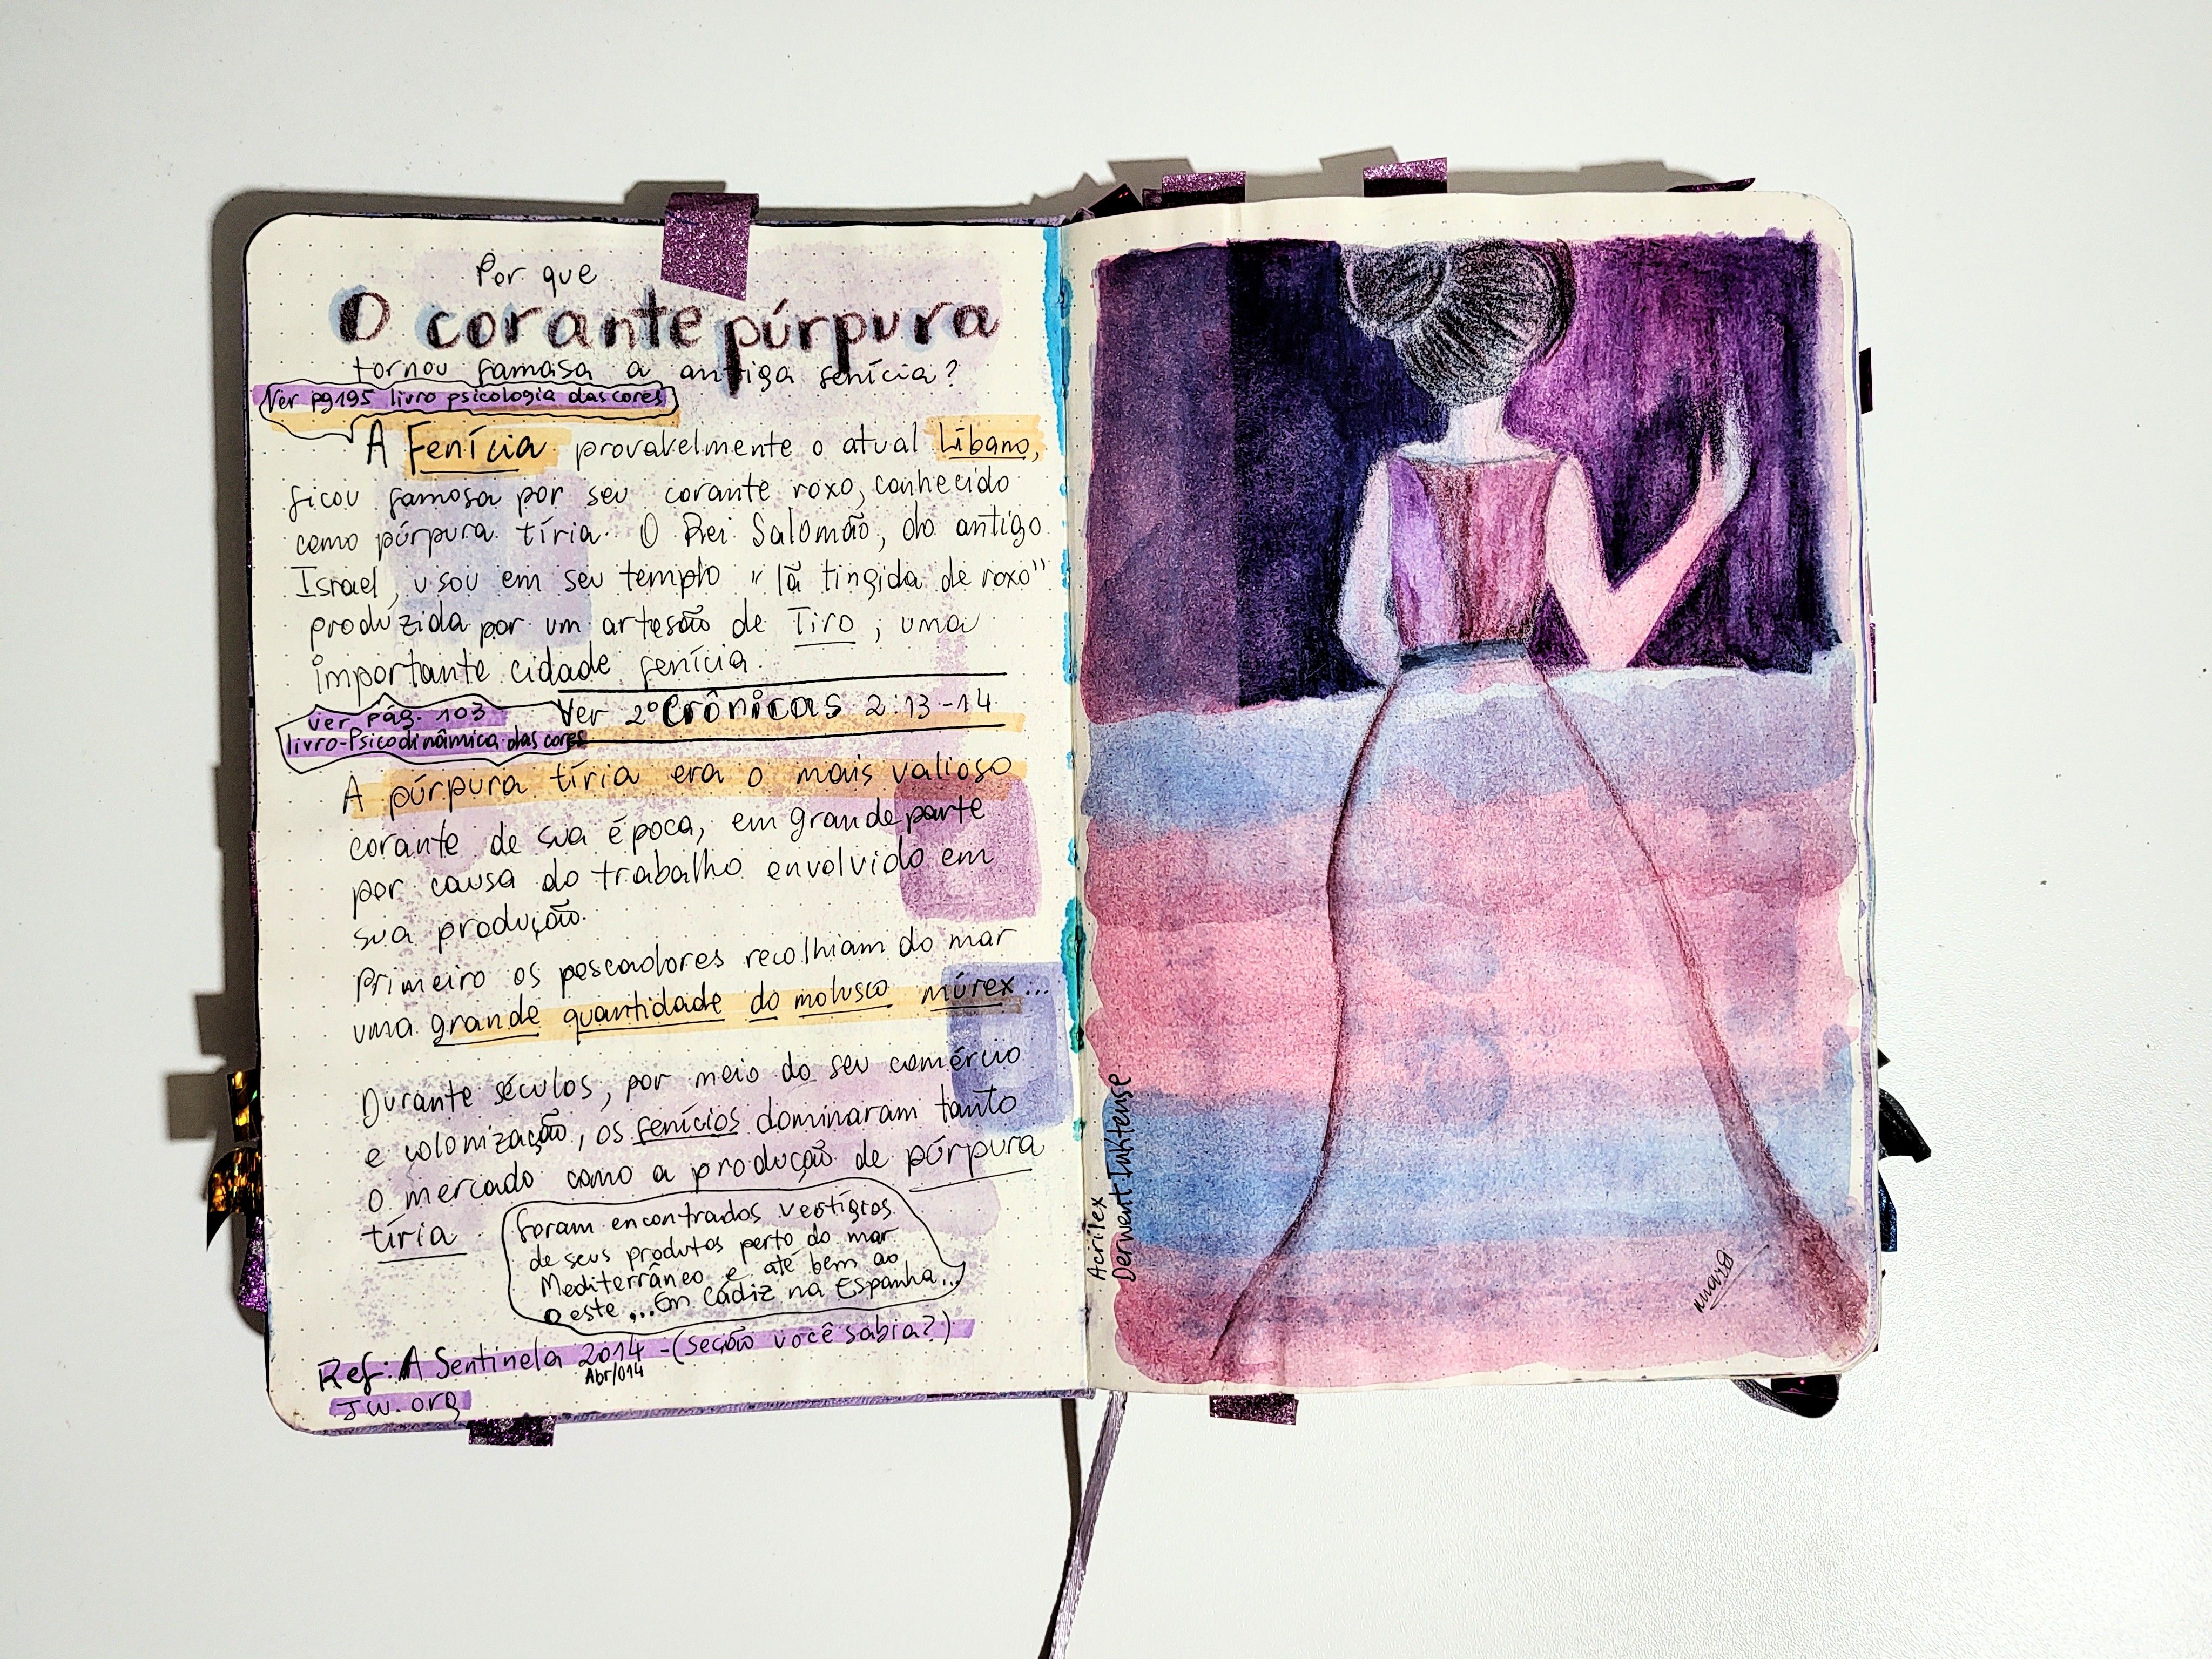 Por que
O corante púrpura
tornou famosa a antiga fenícia?
Ver pg195 livro psicologia das cores
A Fenícia provavelmente o atual Líbano,
ficou famosa por seu corante roxo, conhecido
como púrpura tíria. O Rei Salomão, do antigo
Israel, usou em seu templo "lã tingida de roxo"
produzida por um artesão de Tiro, uma
importante cidade fenícia.
Ver 2º Crônicas 2:13-14
ver pág. 103
livro-Psicodinâmica das cores
A púrpura tíria era o mais valioso
corante de sua época, em grande parte
por causa do trabalho envolvido em
sua produção.
Primeiro os pescadores recolhiam do mar
uma grande quantidade do molusco múrex...
Durante séculos, por meio do seu comércio
e colonização, os fenícios dominaram tanto
o mercado como a produção de púrpura
tíria
foram encontrados vestígios
de seus produtos perto do mar
Mediterrâneo e até bem ao
oeste ... Em Cádiz na Espanha...
Ref: A Sentinela 2014 - (seção você sabia?)
Abr/014
JW.org
Acrilex
Derwent Inktense